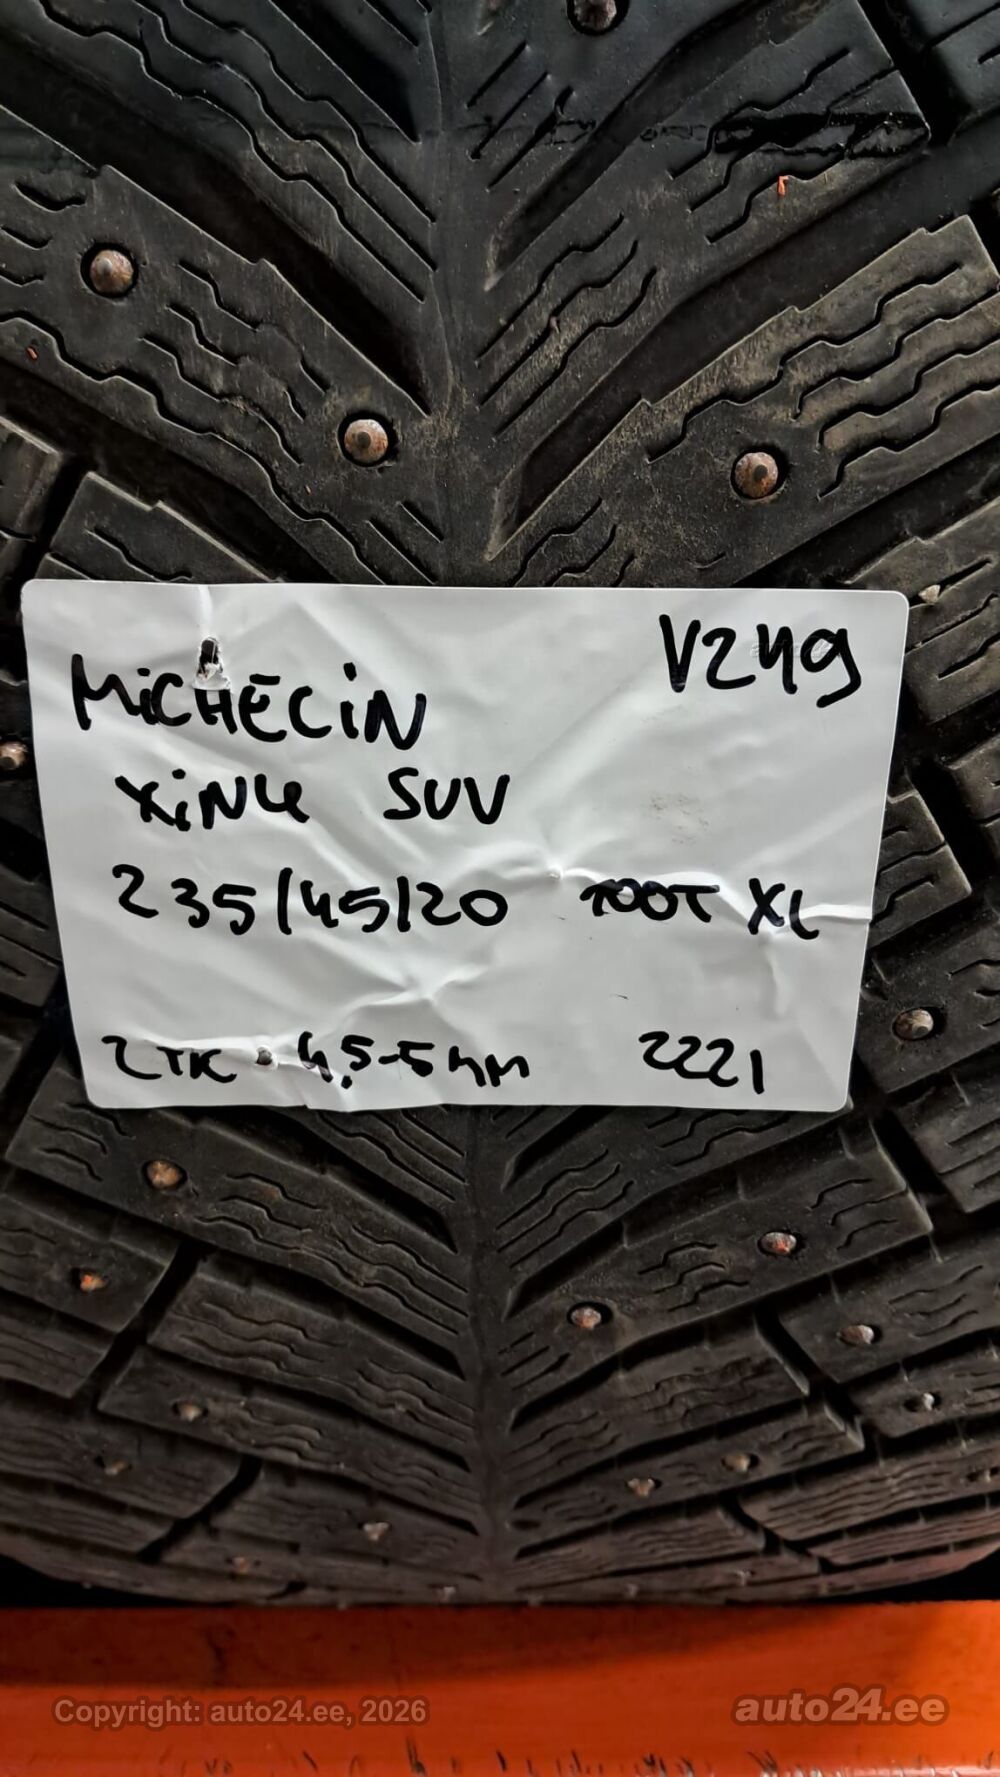 V249
MiCHELiN
XiN4 SUV
235/45/20 100T XL
2TK • 4,5-5mm 2221
Copyright: auto24.ee, 2026
auto24.ee